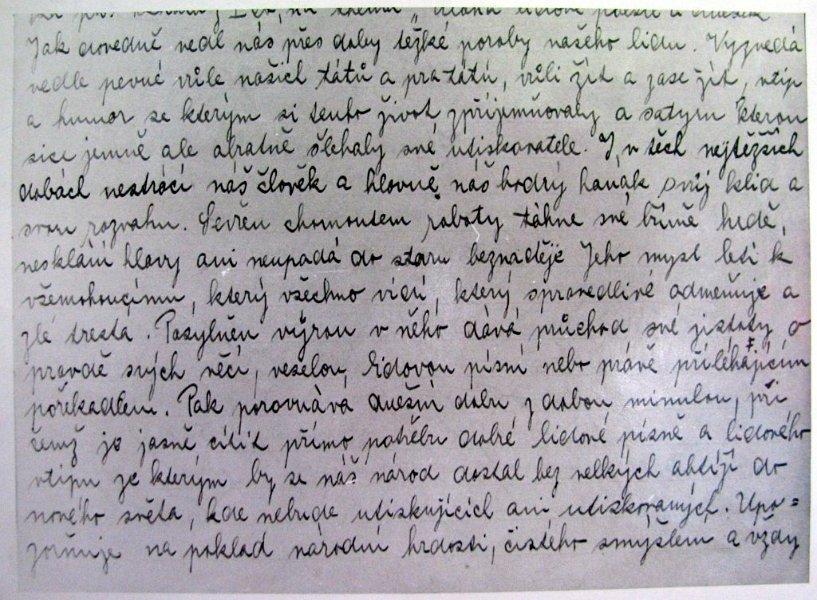 na thema „ úloha lidové poesie v dnešku
Jak dovedně vedl nás přes doby těžké poroby našeho lidu. Vyzvedá
vedle pevné vůle našich tátů a pratátů, vůli žít a zase žít, vtip
a humor se kterým si tento život zpříjemňovaly a satyru kterou
sice jemně ale obratně šlehaly své utiskovatele. I v těch nejtěžších
dobách neztrácí náš člověk a hlavně náš bodrý hanák svůj klid a
svou rozvahu. Sevřen chomoutem roboty táhne své břímě hrdě,
nesklání hlavy ani neupadá do stavu beznaděje Jeho mysl letí k
všemohoucímu, který všechno vidí, který spravedlivé odměňuje a
zlé trestá. Posylněn výrou v něho dává průchod své jistoty o
pravdě svých věcí, veselou, lidovou písní nebo právě příléhajícím
pořekadlem. Pak porovnává dnešní dobu z dobou minulou, při
čemž je jasně cítit přímo potřebu dobré lidové písně a lidového
vtipu ze kterým by se náš národ dostal bez velkých obtíží do
nového světa, kde nebude utiskujících ani utiskovaných. Upo=
zorňuje na poklad národní hrdosti, čistého smýšlení a vždy